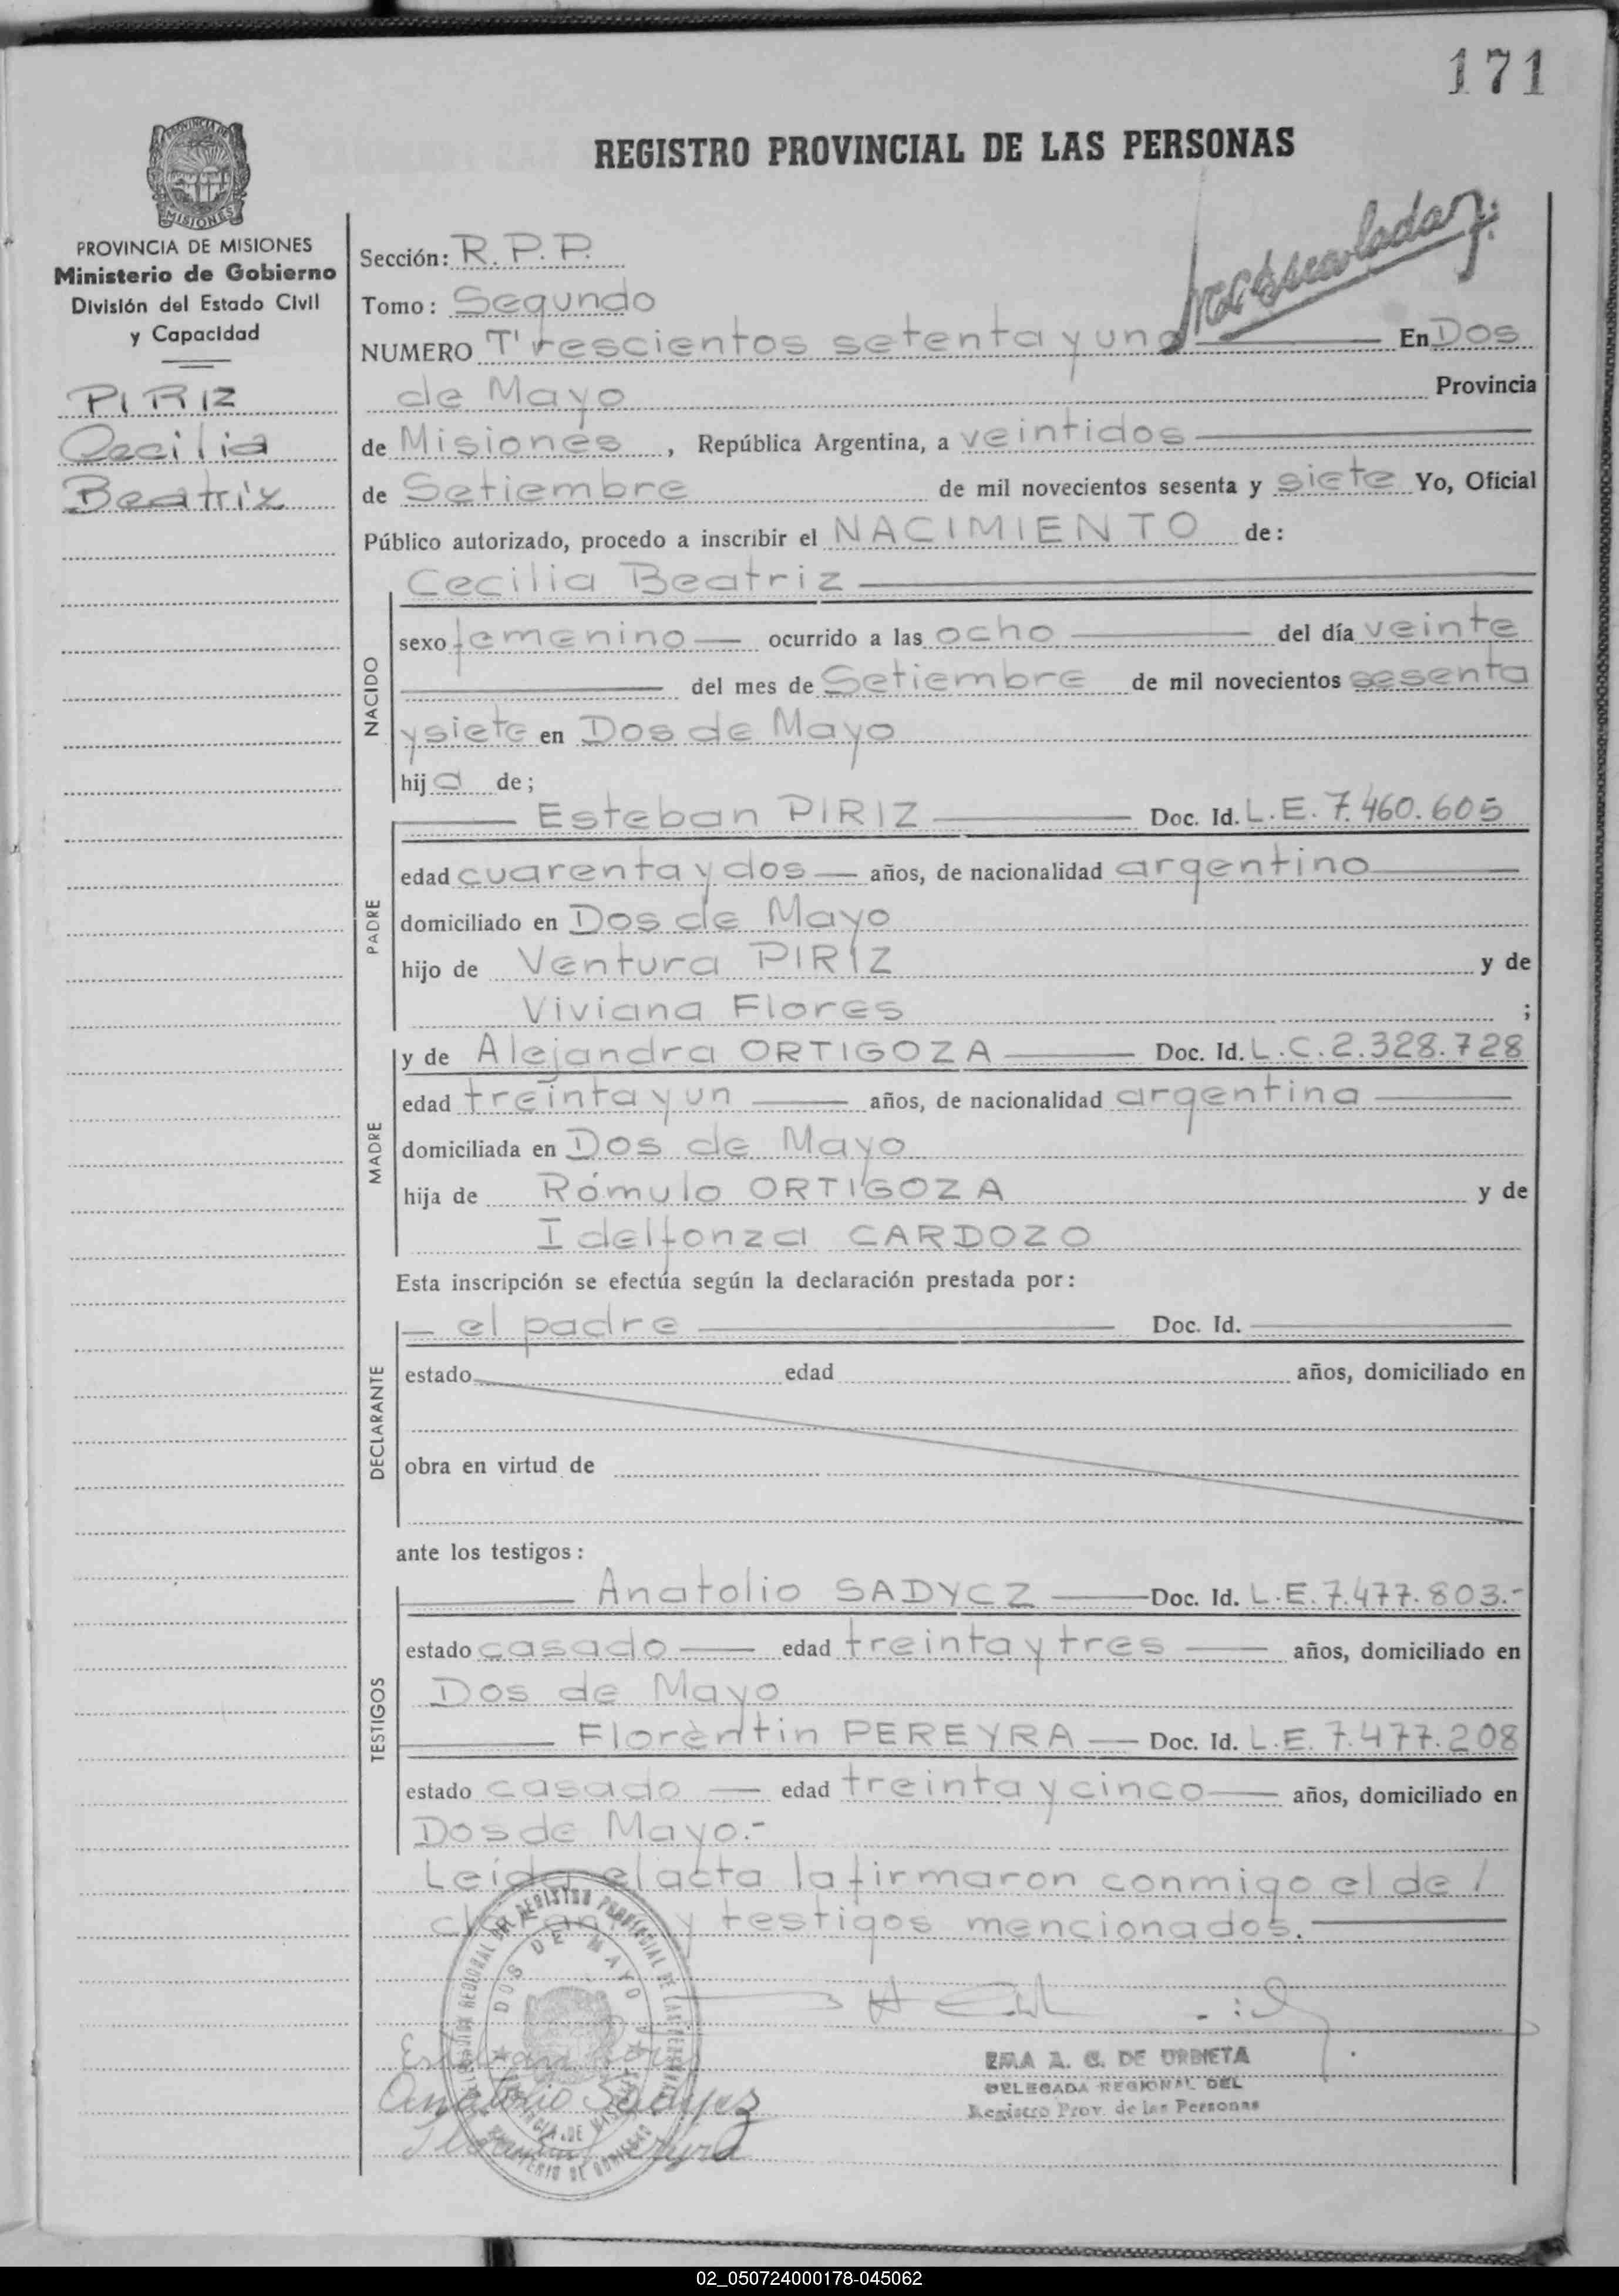 171
REGISTRO PROVINCIAL DE LAS PERSONAS
PROVINCIA DE
MISIONES
PROVINCIA DE MISIONES
Ministerio de Gobierno
División del Estado Civil
y Capacidad
PIRIZ
Cecilia
Beatriz
Sección: R.P.P.
Tomo: Segundo
NUMERO Trescientos setenta y uno En Dos
de Mayo Provincia
de Misiones, República Argentina, a veintidos
de Setiembre de mil novecientos sesenta y siete Yo, Oficial
Público autorizado, procedo a inscribir el NACIMIENTO de:
Cecilia Beatriz
NACIDO
sexo femenino ocurrido a las ocho del día veinte
del mes de Setiembre de mil novecientos sesenta
y siete en Dos de Mayo
hija de;
PADRE
Esteban PIRIZ Doc. Id. L.E. 7.460.605
edad cuarenta y dos años, de nacionalidad argentino
domiciliado en Dos de Mayo
hijo de Ventura PIRIZ y de
Viviana Flores ;
MADRE
y de Alejandra ORTIGOZA Doc. Id. L.C. 2.328.728
edad treinta y un años, de nacionalidad argentina
domiciliada en Dos de Mayo
hija de Rómulo ORTIGOZA y de
Idelfonza CARDOZO
Esta inscripción se efectúa según la declaración prestada por:
DECLARANTE
el padre Doc. Id.
estado edad años, domiciliado en
obra en virtud de
ante los testigos:
TESTIGOS
Anatolio SADYCZ Doc. Id. L.E. 7.477.803.-
estado casado edad treinta y tres años, domiciliado en
Dos de Mayo
Florentin PEREYRA Doc. Id. L.E. 7.477.208
estado casado edad treinta y cinco años, domiciliado en
Dos de Mayo.-
Leida el acta la firmaron conmigo el de/
clarante y testigos mencionados.
DOS DE MAYO
Anatolio Sadycz
EMA A. G. DE URBIETA
DELEGADA REGIONAL DEL
Registro Prov. de las Personas
02_050724000178-045062